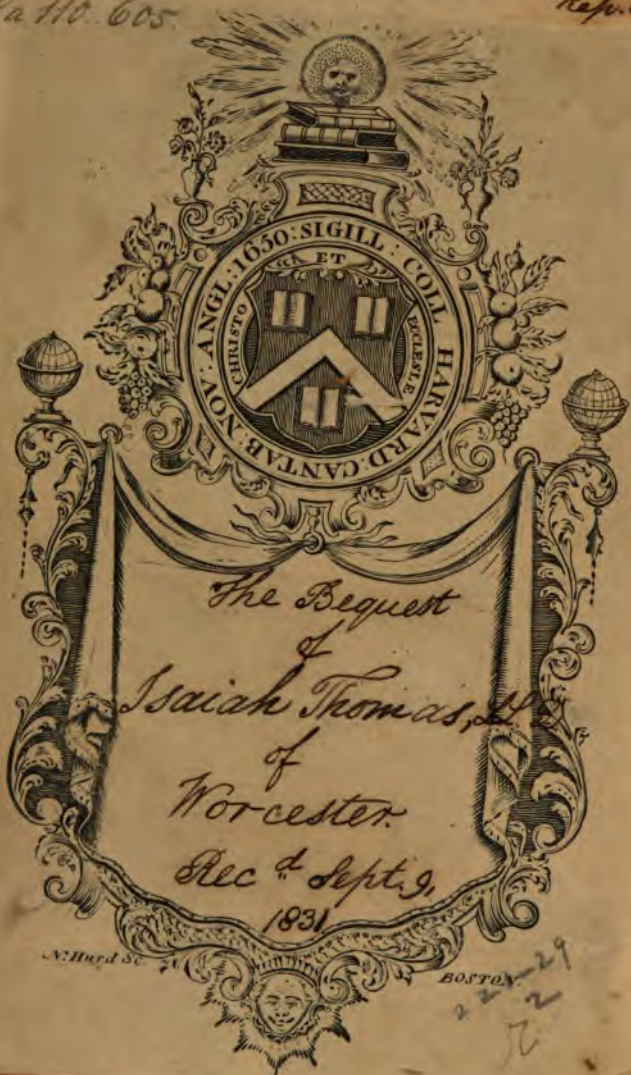 a 110.605.
SIGILL : COLL HARVARD : CANTAB : NOV : ANGL : 1650 :
ET
CHRISTO
ECCLESIÆ
The Bequest
of
Isaiah Thomas, LL.D.
of
Worcester.
Rec.d Sept. 9,
1831
N: Hurd Sc.
BOSTON.
2